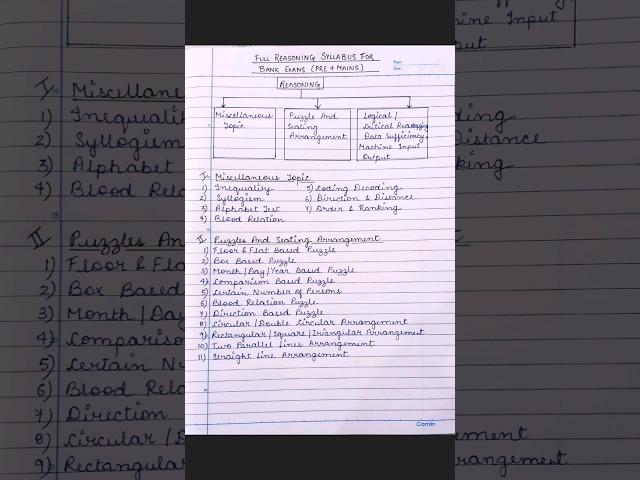 FULL REASONING SYLLABUS FOR
BANK EXAMS (PRE + MAINS)
REASONING
Miscellaneous Topic
Puzzle And Seating Arrangement
Logical / Critical Reasoning
Data Sufficiency
Machine Input Output
I Miscellaneous Topic
1) Inequality
2) Syllogism
3) Alphabet Test
4) Blood Relation
5) Coding Decoding
6) Direction & Distance
7) Order & Ranking
II Puzzles And Seating Arrangement
1) Floor & Flat Based Puzzle
2) Box Based Puzzle
3) Month / Day / Year Based Puzzle
4) Comparison Based Puzzle
5) Certain Number of Persons
6) Blood Relation Puzzle
7) Direction Based Puzzle
8) Circular / Double Circular Arrangement
9) Rectangular / Square / Triangular Arrangement
10) Two Parallel Lines Arrangement
11) Straight Line Arrangement
Camlin